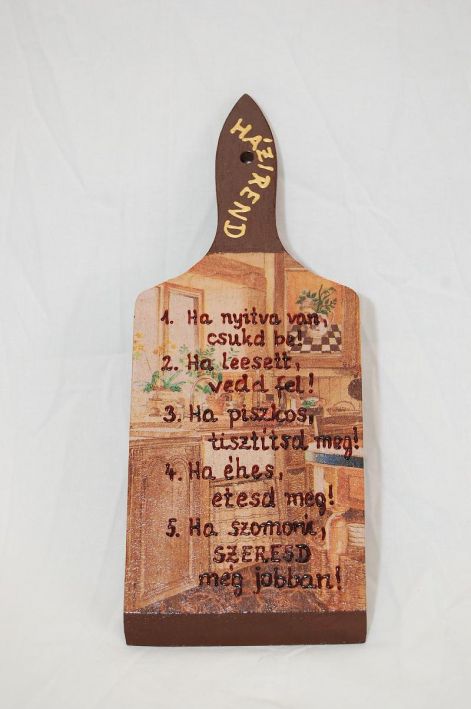 HÁZIREND
1. Ha nyitva van,
csukd be!
2. Ha leesett,
vedd fel!
3. Ha piszkos,
tisztítsd meg!
4. Ha éhes,
etesd meg!
5. Ha szomorú,
SZERESD
még jobban!